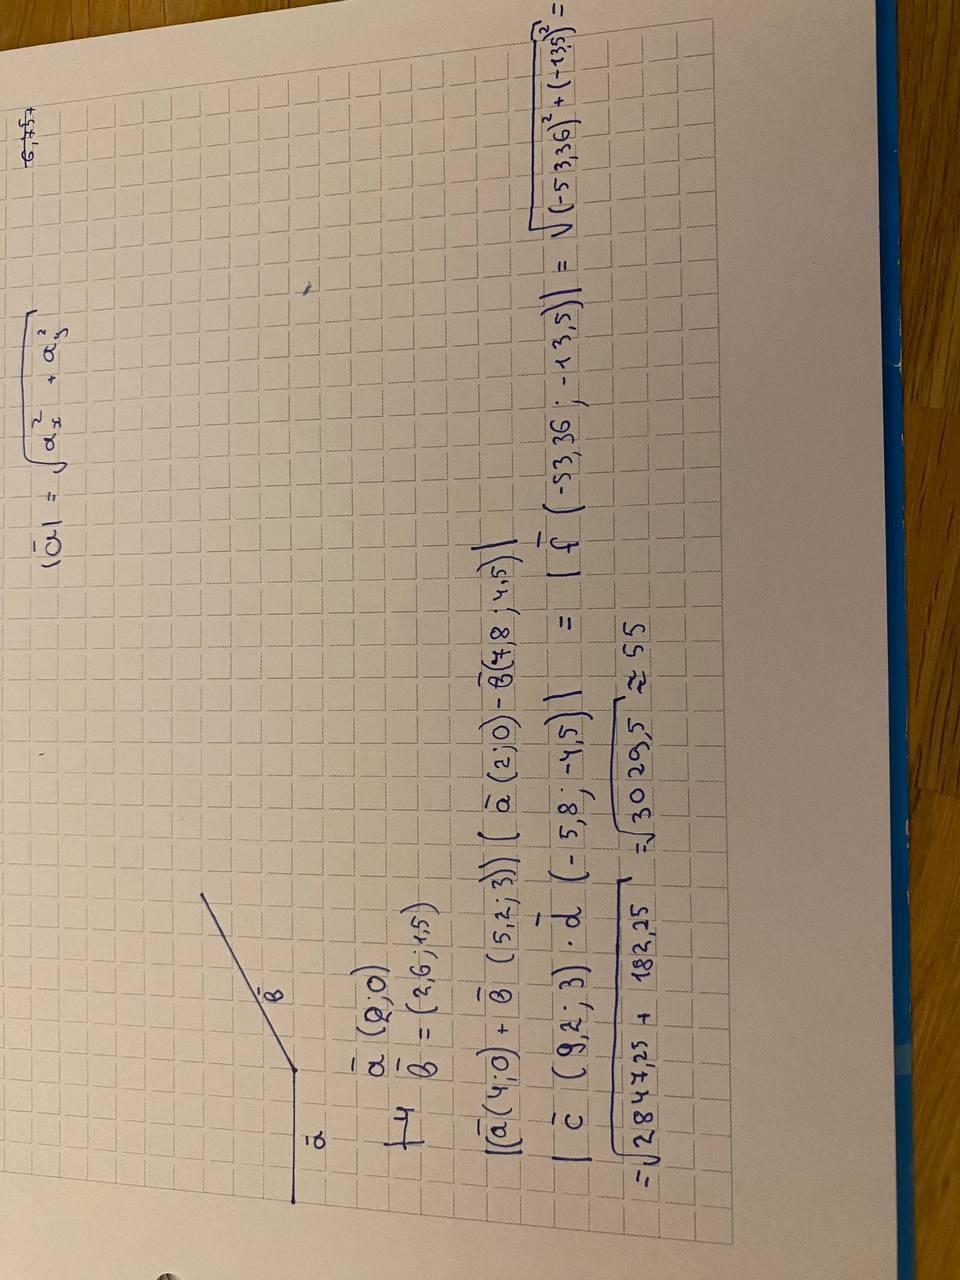 6,75+
|ā| = √(aₓ² + a_y²)
ā
b̄
ā (2;0)
b̄ = (2,6;1,5)
|(ā(4;0) + b̄ (5,2;3)) (ā (2;0) - b̄(7,8;4,5)|
|c̄ (9,2;3)) · d̄ (-5,8;-4,5)| = |f̄ (-53,36;-13,5)| = √((-53,36)² + (-13,5)²) =
= √(2847,25 + 182,25) = √3029,5 ≈ 55